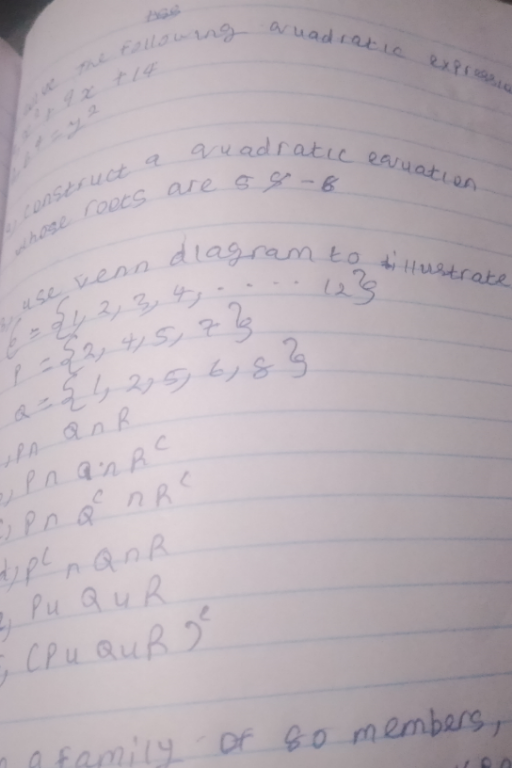 the following quadratic
x² + 9x + 14
= y²
construct a quadratic equation
whose roots are 5 & -6
use venn diagram to illustrate
ε = {1, 2, 3, 4, ..... 12}
P = {2, 4, 5, 7}
Q = {1, 2, 5, 6, 8}
P∩ Q∩R
P∩Q∩R^c
P∩Q^c ∩R^c
d, P^c ∩Q∩R
P∪Q∪R
(P∪Q∪R)^c
a family of 80 members,